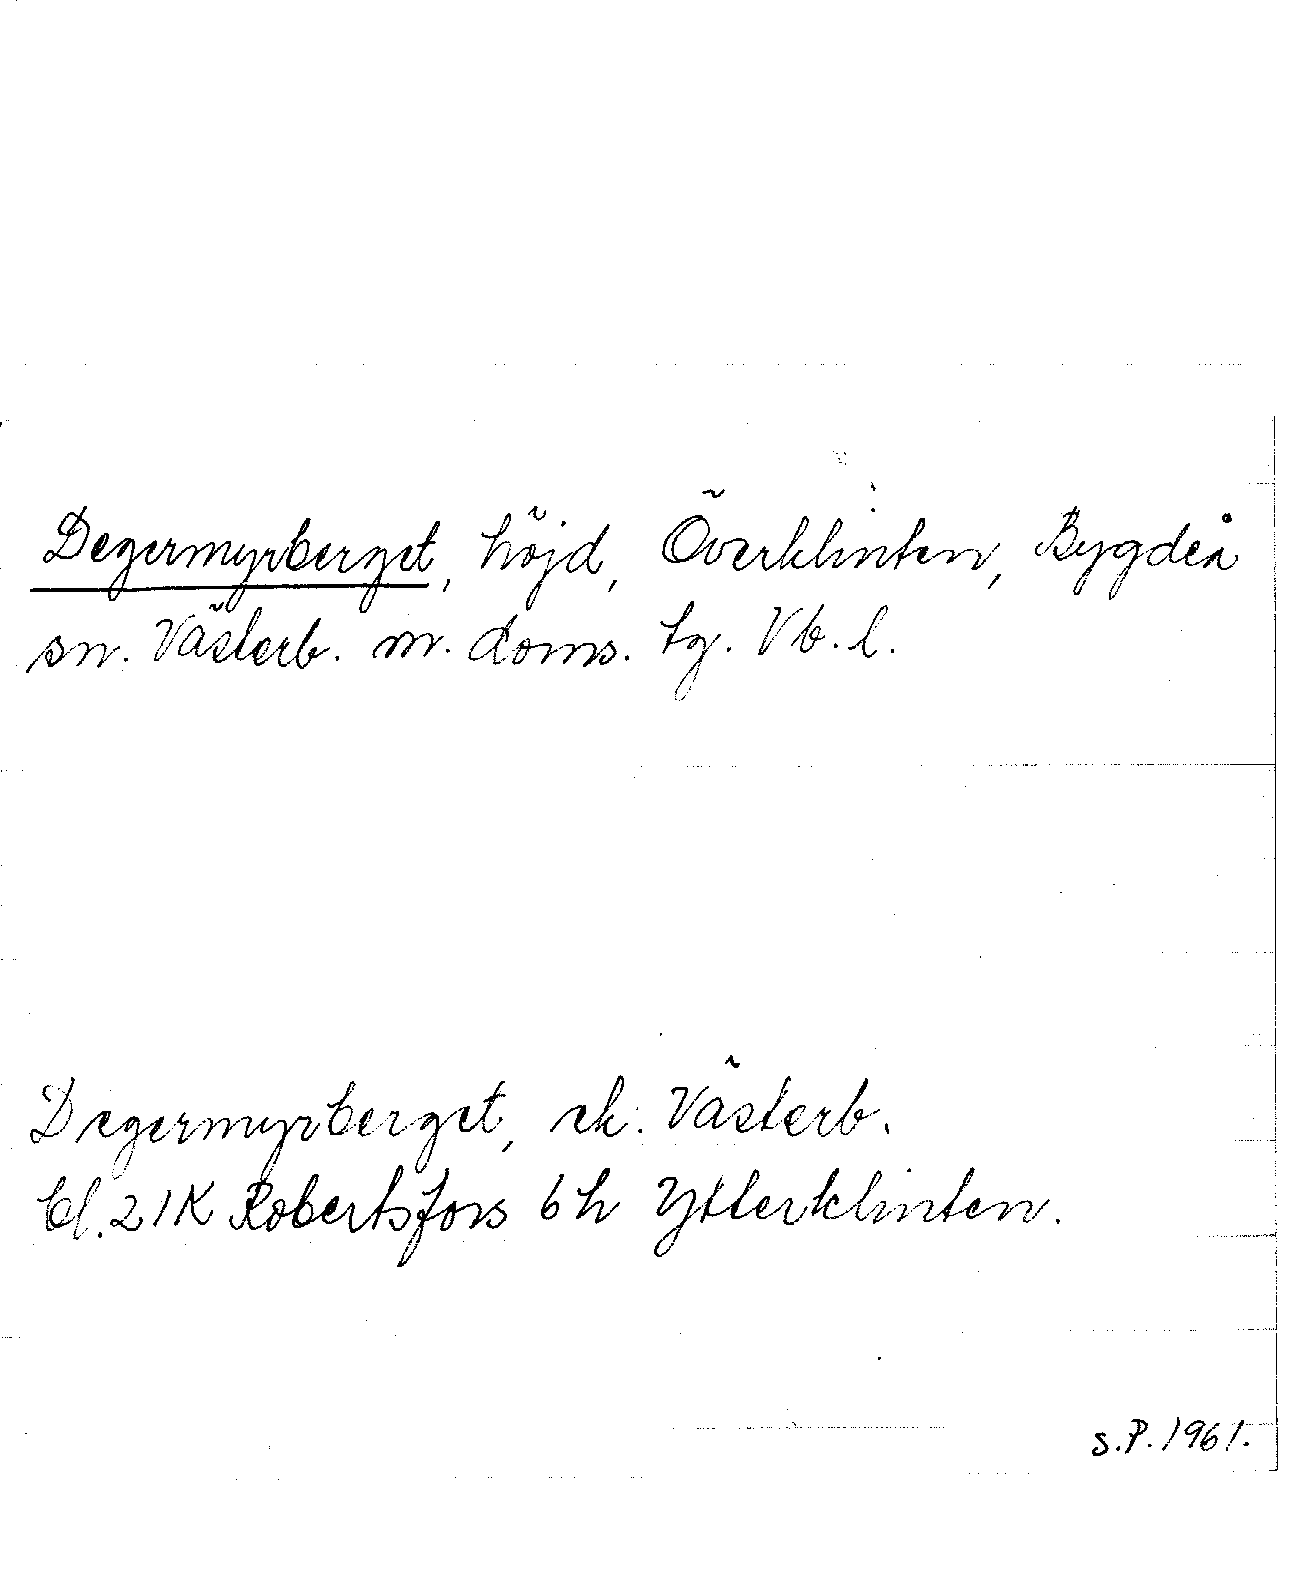 Degermyrberget, höjd, Överklinten, Bygdeå
sn. Västerb. m. doms. tg. Vb. l.
Degermyrberget, ek. Västerb.
bl. 21K Robertsfors 6h Ytterklinten.
S.P. 1961.